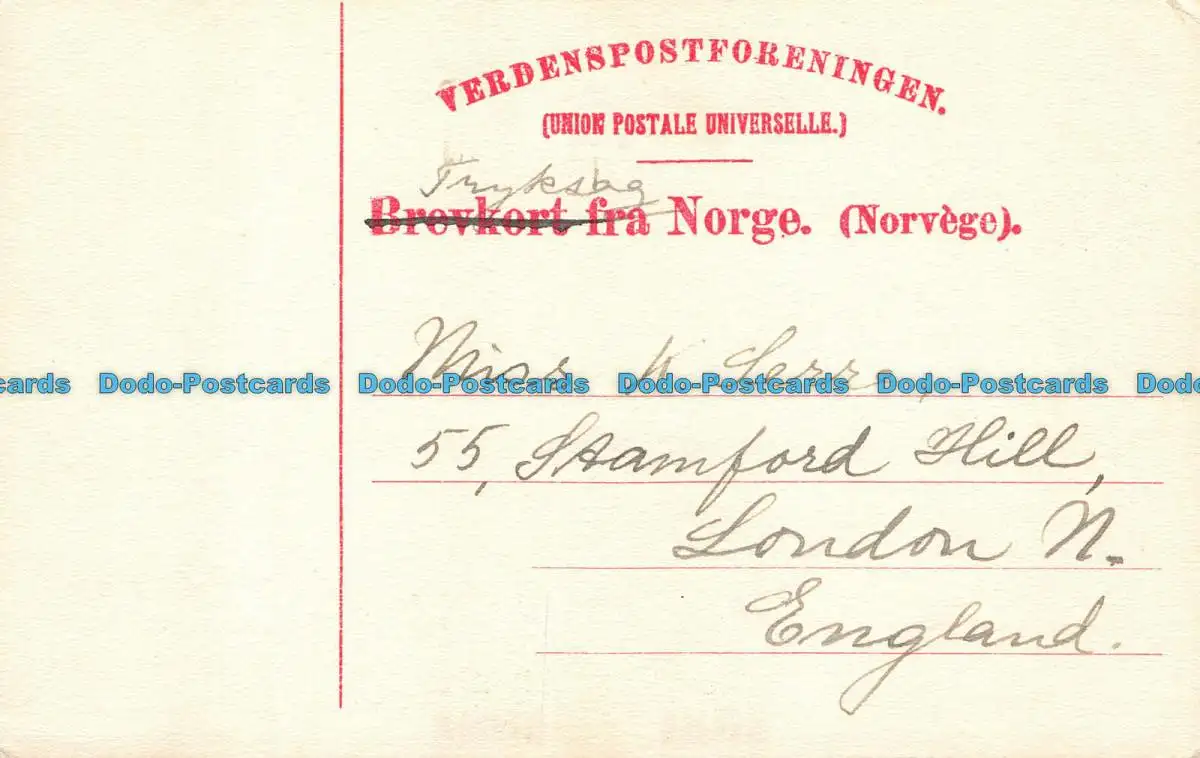 VERDENSPOSTFORENINGEN.
(UNION POSTALE UNIVERSELLE.)
Tryksag
Brevkort fra Norge. (Norvège).
Miss
cards Dodo-Postcards Dodo-Postcards Dodo-Postcards Dodo-Postcards Dodo
55, Stamford Hill,
London N.
England.